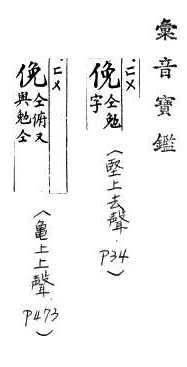 彙音寶鑑
ㄷㄨ
俛
仝勉
字
(堅上去聲.
P34)
ㄷㄨ
俛
仝俯又
與勉仝
(龜上上聲.
P473)